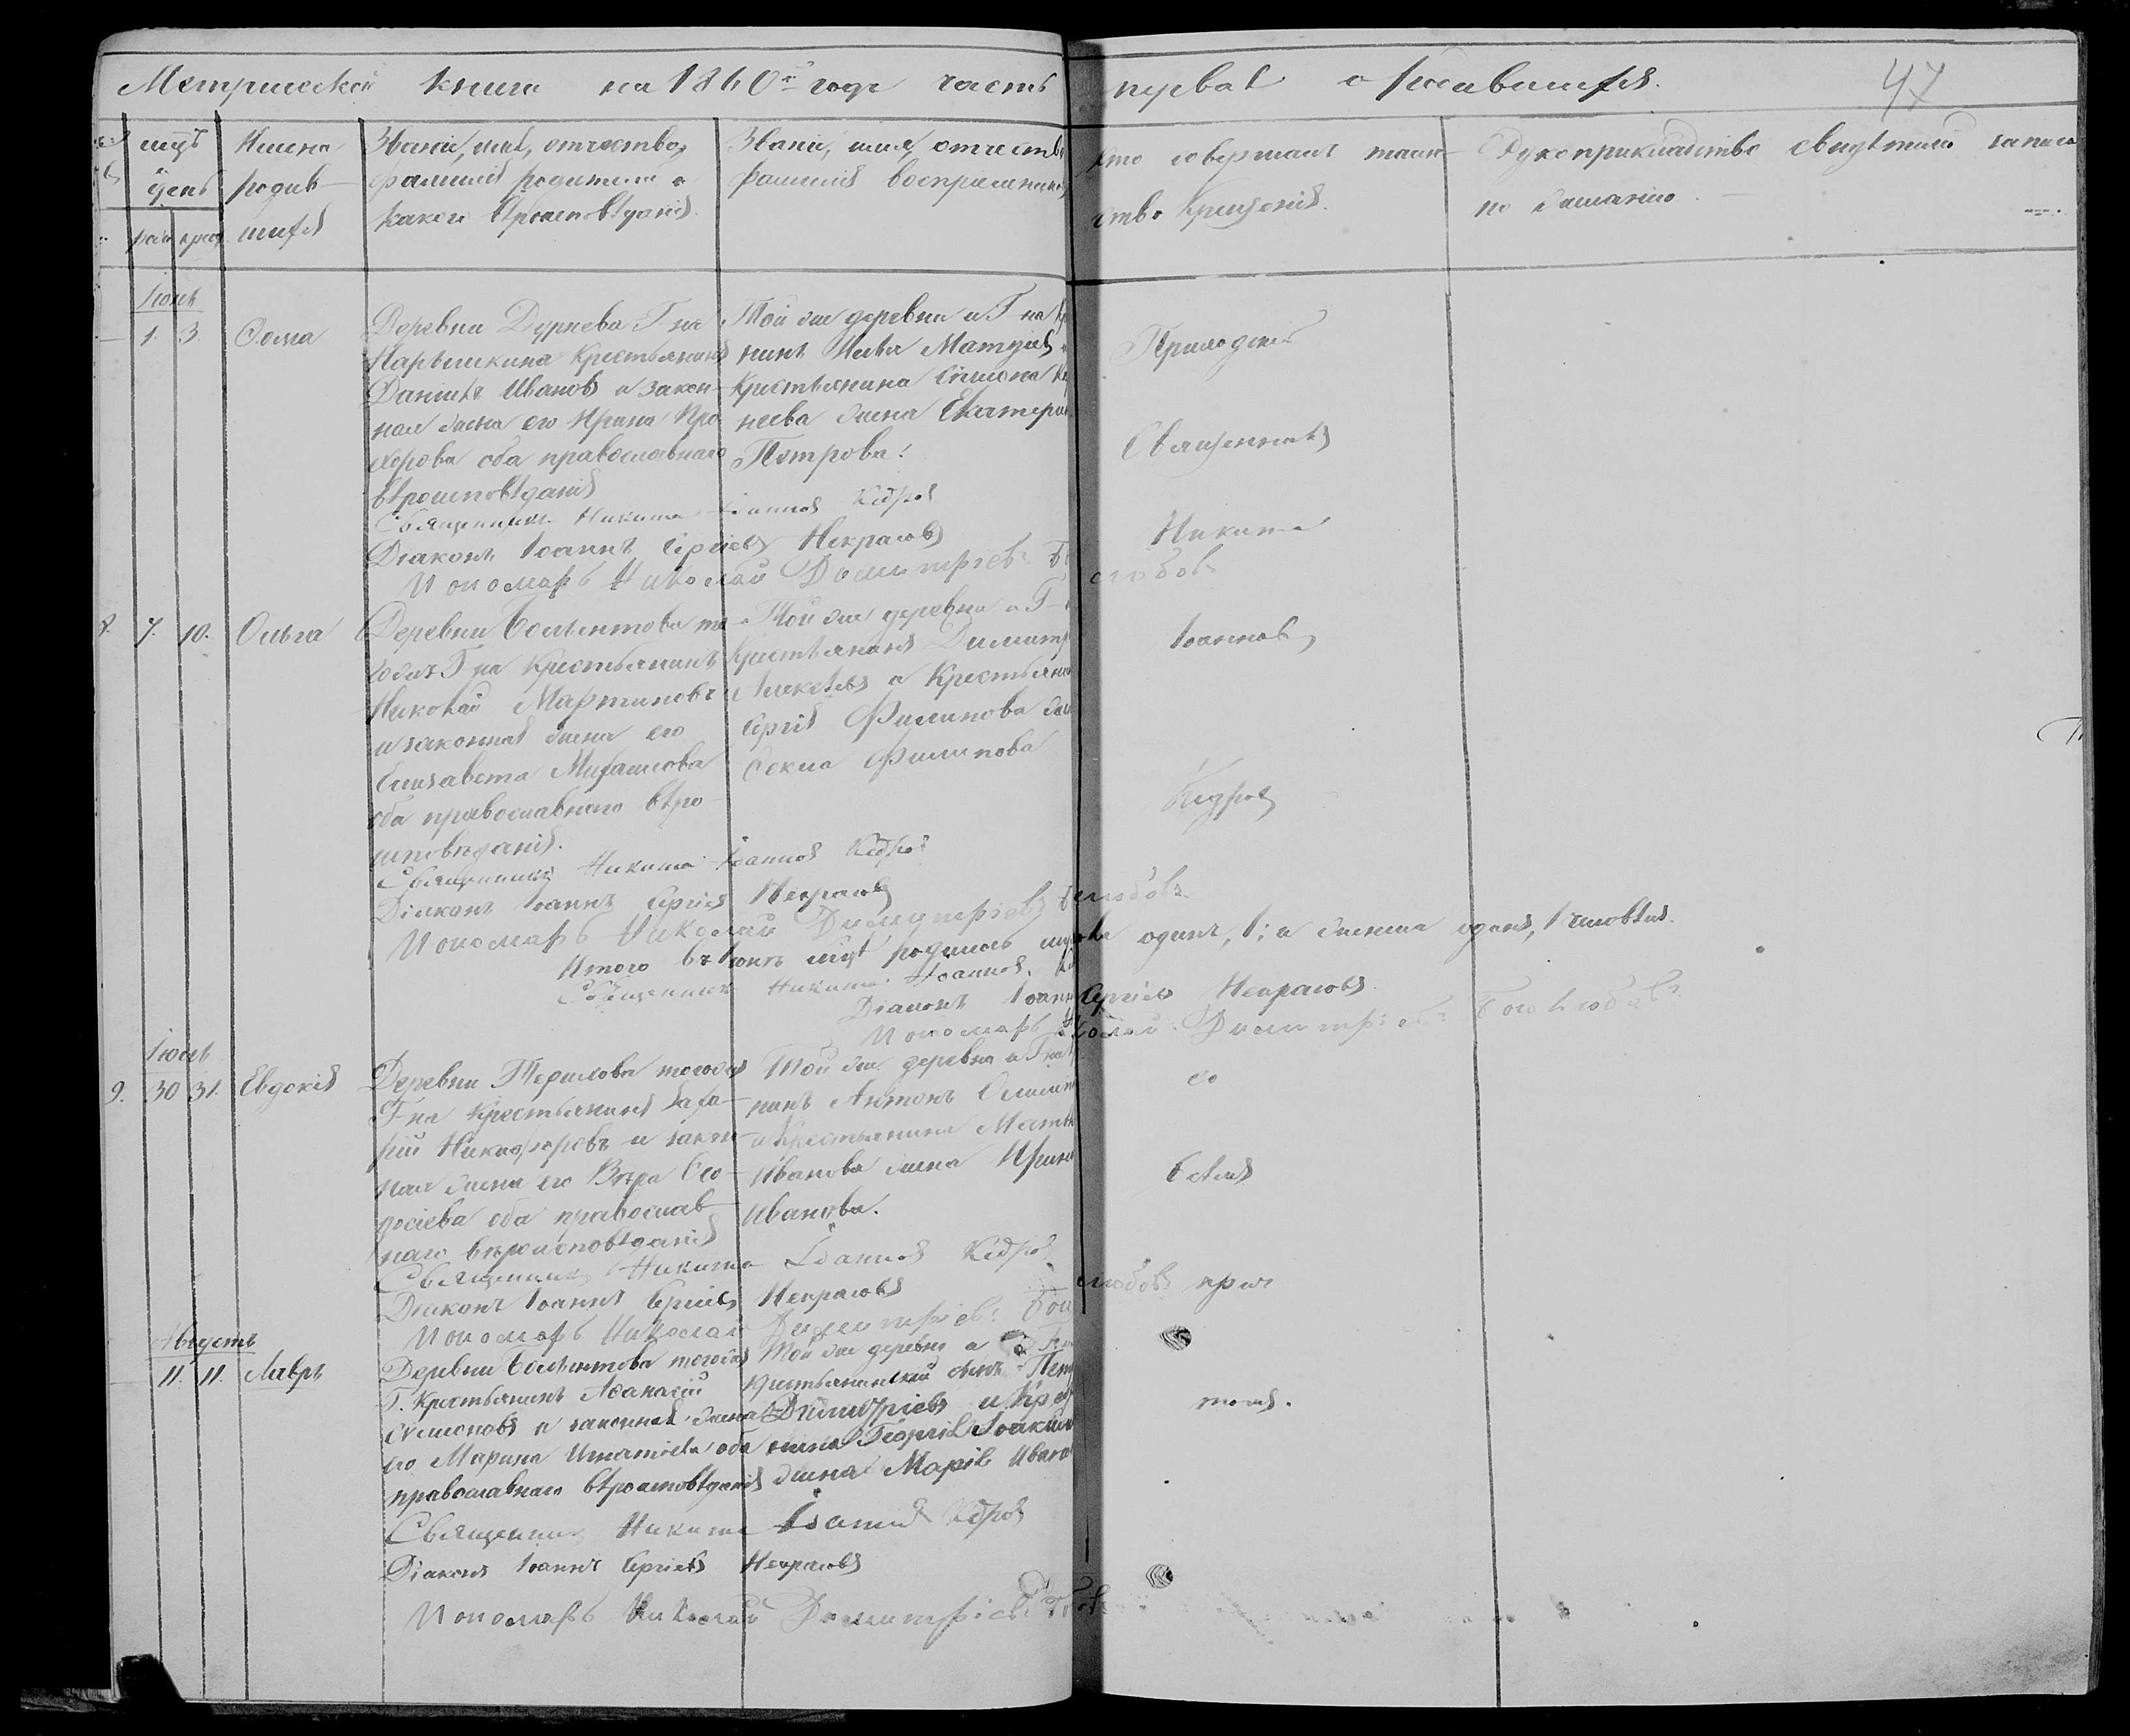 Метрической книги на 1860й годъ часть первая о родившихся.
47
мцъ
день
рожд. крещ.
Имена
родив-
шихся
Званіе, имя, отчество,
фамилія родителей и
какого вѣроисповѣданія.
Званіе, имя, отчество
фамилія воспріемниковъ
Кто совершалъ таин-
ство крещенія.
Рукоприкладство свидѣтелей записи
по желанію
Іюнь
1. 3. Ѳома
Деревни Дурнева Г-на
Нарышкина Крестьянинъ
Даніилъ Ивановъ и закон-
ная жена его Ирина Про-
хорова оба православнаго
вѣроисповѣданія
Той же деревни и Г-на Кр
нинъ
Крестьянина Симеона
жена Екатерин
Петрова.
Священникъ Никита Іоанновъ Кедровъ
Діаконъ Іоаннъ Сергіевъ Некрасовъ
Пономарь Николай Димитріевъ Боголюбовъ
8. 7. 10. Ольга
Деревни то-
гожъ Г-на Крестьянинъ
Николай Мартиновъ
и законная жена его
Елизавета Михаилова
оба православнаго вѣро-
исповѣданія.
Той же деревни и Г-
Крестьянинъ Димитр
Алексѣевъ и Крестьяни
Сергія Филипова же
Ѳекла Филипова
Священникъ Никита Іоанновъ Кедровъ
Діаконъ Іоаннъ Сергіевъ Некрасовъ
Пономарь Николай Димитріевъ Боголюбовъ
Итого въ Іюнѣ мцѣ родилось мужеска одинъ, 1; а женска одинъ, 1 человѣкъ.
Священникъ Никита Іоанновъ Ке
Діаконъ Іоаннъ Сергіевъ Некрасовъ
Пономарь Николай Димитріевъ Боголюбовъ
Іюль
9. 30 31. Евдокія
Деревни тогожъ
Г-на Крестьянинъ Заха-
рій Никифоровъ и закон-
ная жена его Вѣра Ѳео-
досіева оба православ-
наго вѣроисповѣданія
Той же деревни и Г-на
нинъ Антонъ
и Крестьянина Матв
Иванова жена Ирина
Иванова.
Священникъ Никита Іоанновъ Кедровъ
Діаконъ Іоаннъ Сергіевъ Некрасовъ
Пономарь Николай Димитріевъ Боголюбовъ
Августъ
11. 11. Лавръ
Деревни тогожъ
Г. Крестьянинъ Аѳанасій
Симеоновъ и законная жена
его Марина Игнатіева оба
православнаго вѣроисповѣданія
Той же деревни и Г-
крестьянинскій сынъ Пет
Димитріевъ и Крес
нина Георгія Іоаким
жена Марія Ивано
Священникъ Никита Іоанновъ Кедровъ
Діаконъ Іоаннъ Сергіевъ Некрасовъ
Пономарь Николай Димитріевъ
Приходскій
Священникъ
Никита
Іоанновъ
Кедровъ
со
всѣмъ
прич
томъ.